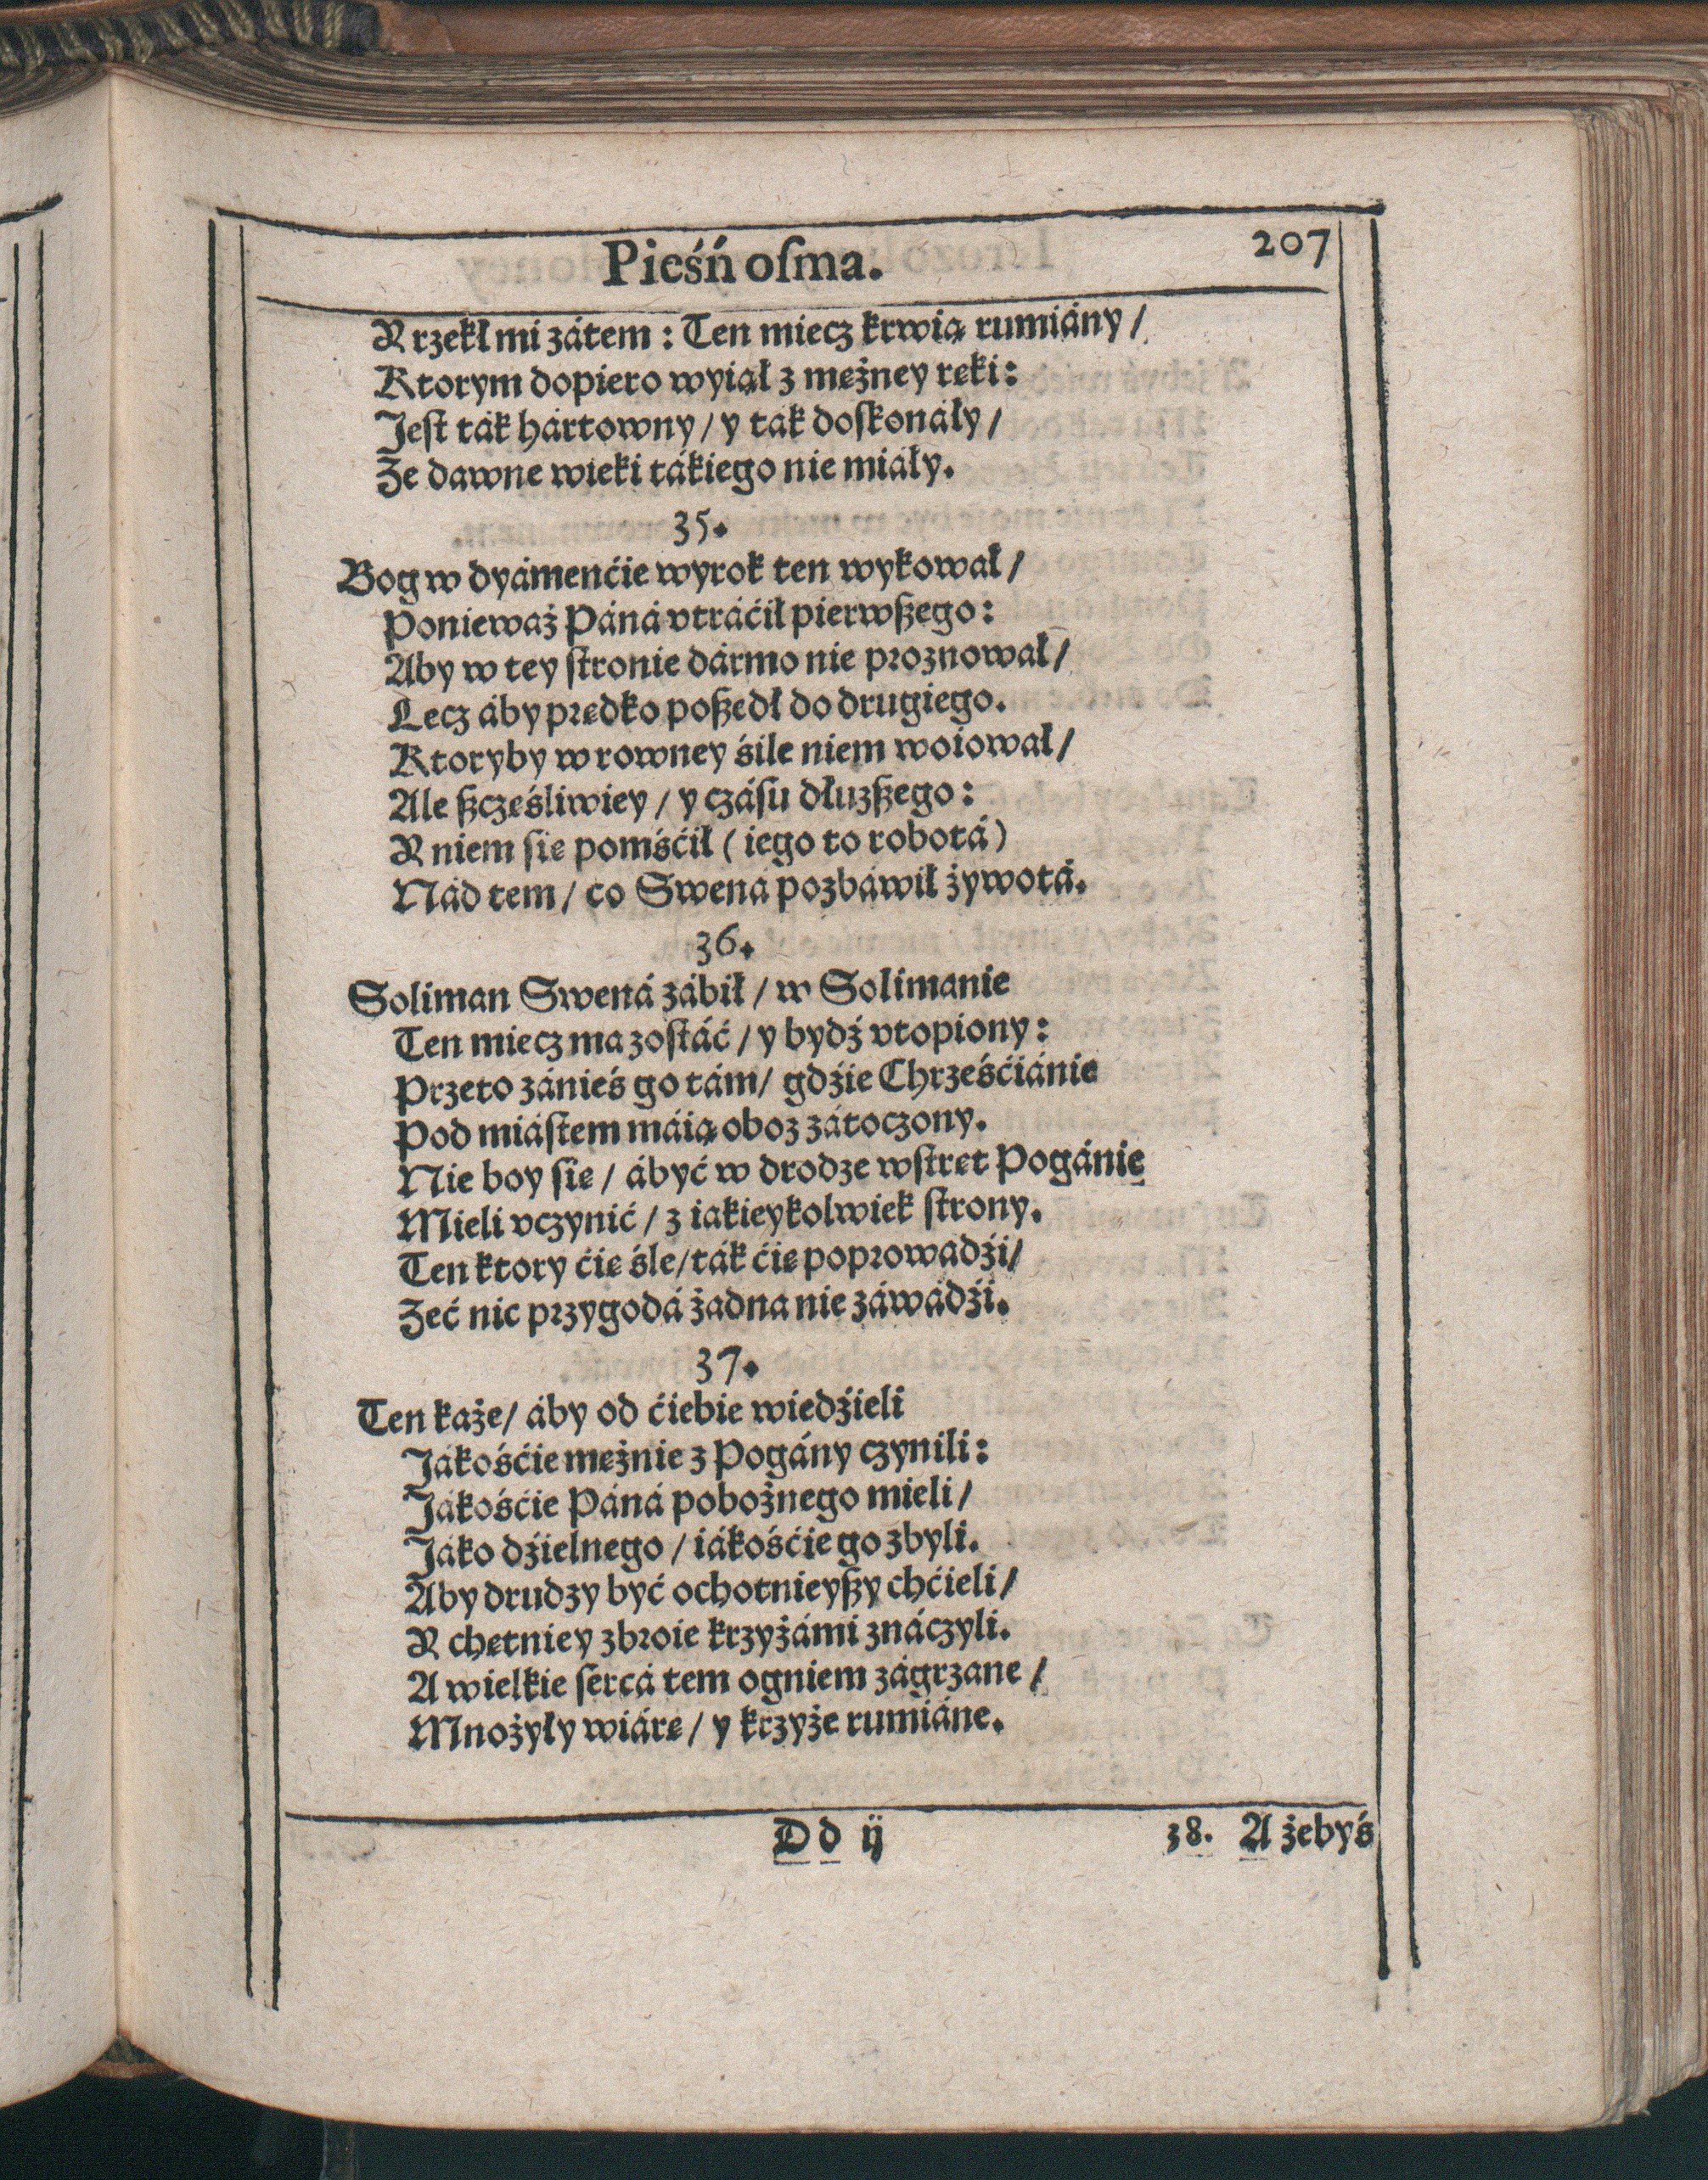 Pieśń oſma.
207
Y rzekł mi zátem: Ten miecz krwią rumiány/
Ktorym dopiero wyiął z mężney ręki:
Jeſt ták hártowny/ y ták doſkonáły/
Że dawne wieki tákiego nie miáły.
35.
Bog w dyámenćie wyrok ten wykował/
Ponieważ Páná vtráćił pierwßego:
Aby w tey ſtronie dármo nie proznował/
Lecz áby prędko poßedł do drugiego.
Ktoryby w rowney śile niem woiował/
Ale ßczęśliwiey/ y czáſu dłuzßego:
Y niem ſię pomśćił (iego to robotá)
Nád tem/ co Swená pozbáwił żywotá.
36.
Soliman Swená zábił/ w Solimanie
Ten miecz ma zoſtáć/ y bydź vtopiony:
Przeto zánieś go tám/ gdźie Chrześćiánie
Pod miáſtem máią oboz zátoczony.
Nie boy ſię/ ábyć w drodze wſtręt Pogánie
Mieli vczynić/ z iakieykolwiek ſtrony.
Ten ktory ćię śle/ ták ćię poprowadźi/
Żeć nic przygodá żadna nie záwádźi.
37.
Ten każe/ áby od ćiebie wiedźieli
Jákośćie mężnie z Pogány czynili:
Jákośćie Páná pobożnego mieli/
Jáko dźielnego/ iákośćie go zbyli.
Aby drudzy być ochotnieyßy chćieli/
Y chętniey zbroie krzyżámi znáczyli.
A wielkie ſercá tem ogniem zágrzane/
Mnożyły wiárę/ y krzyże rumiáne.
Dd ij
38. A żebyś